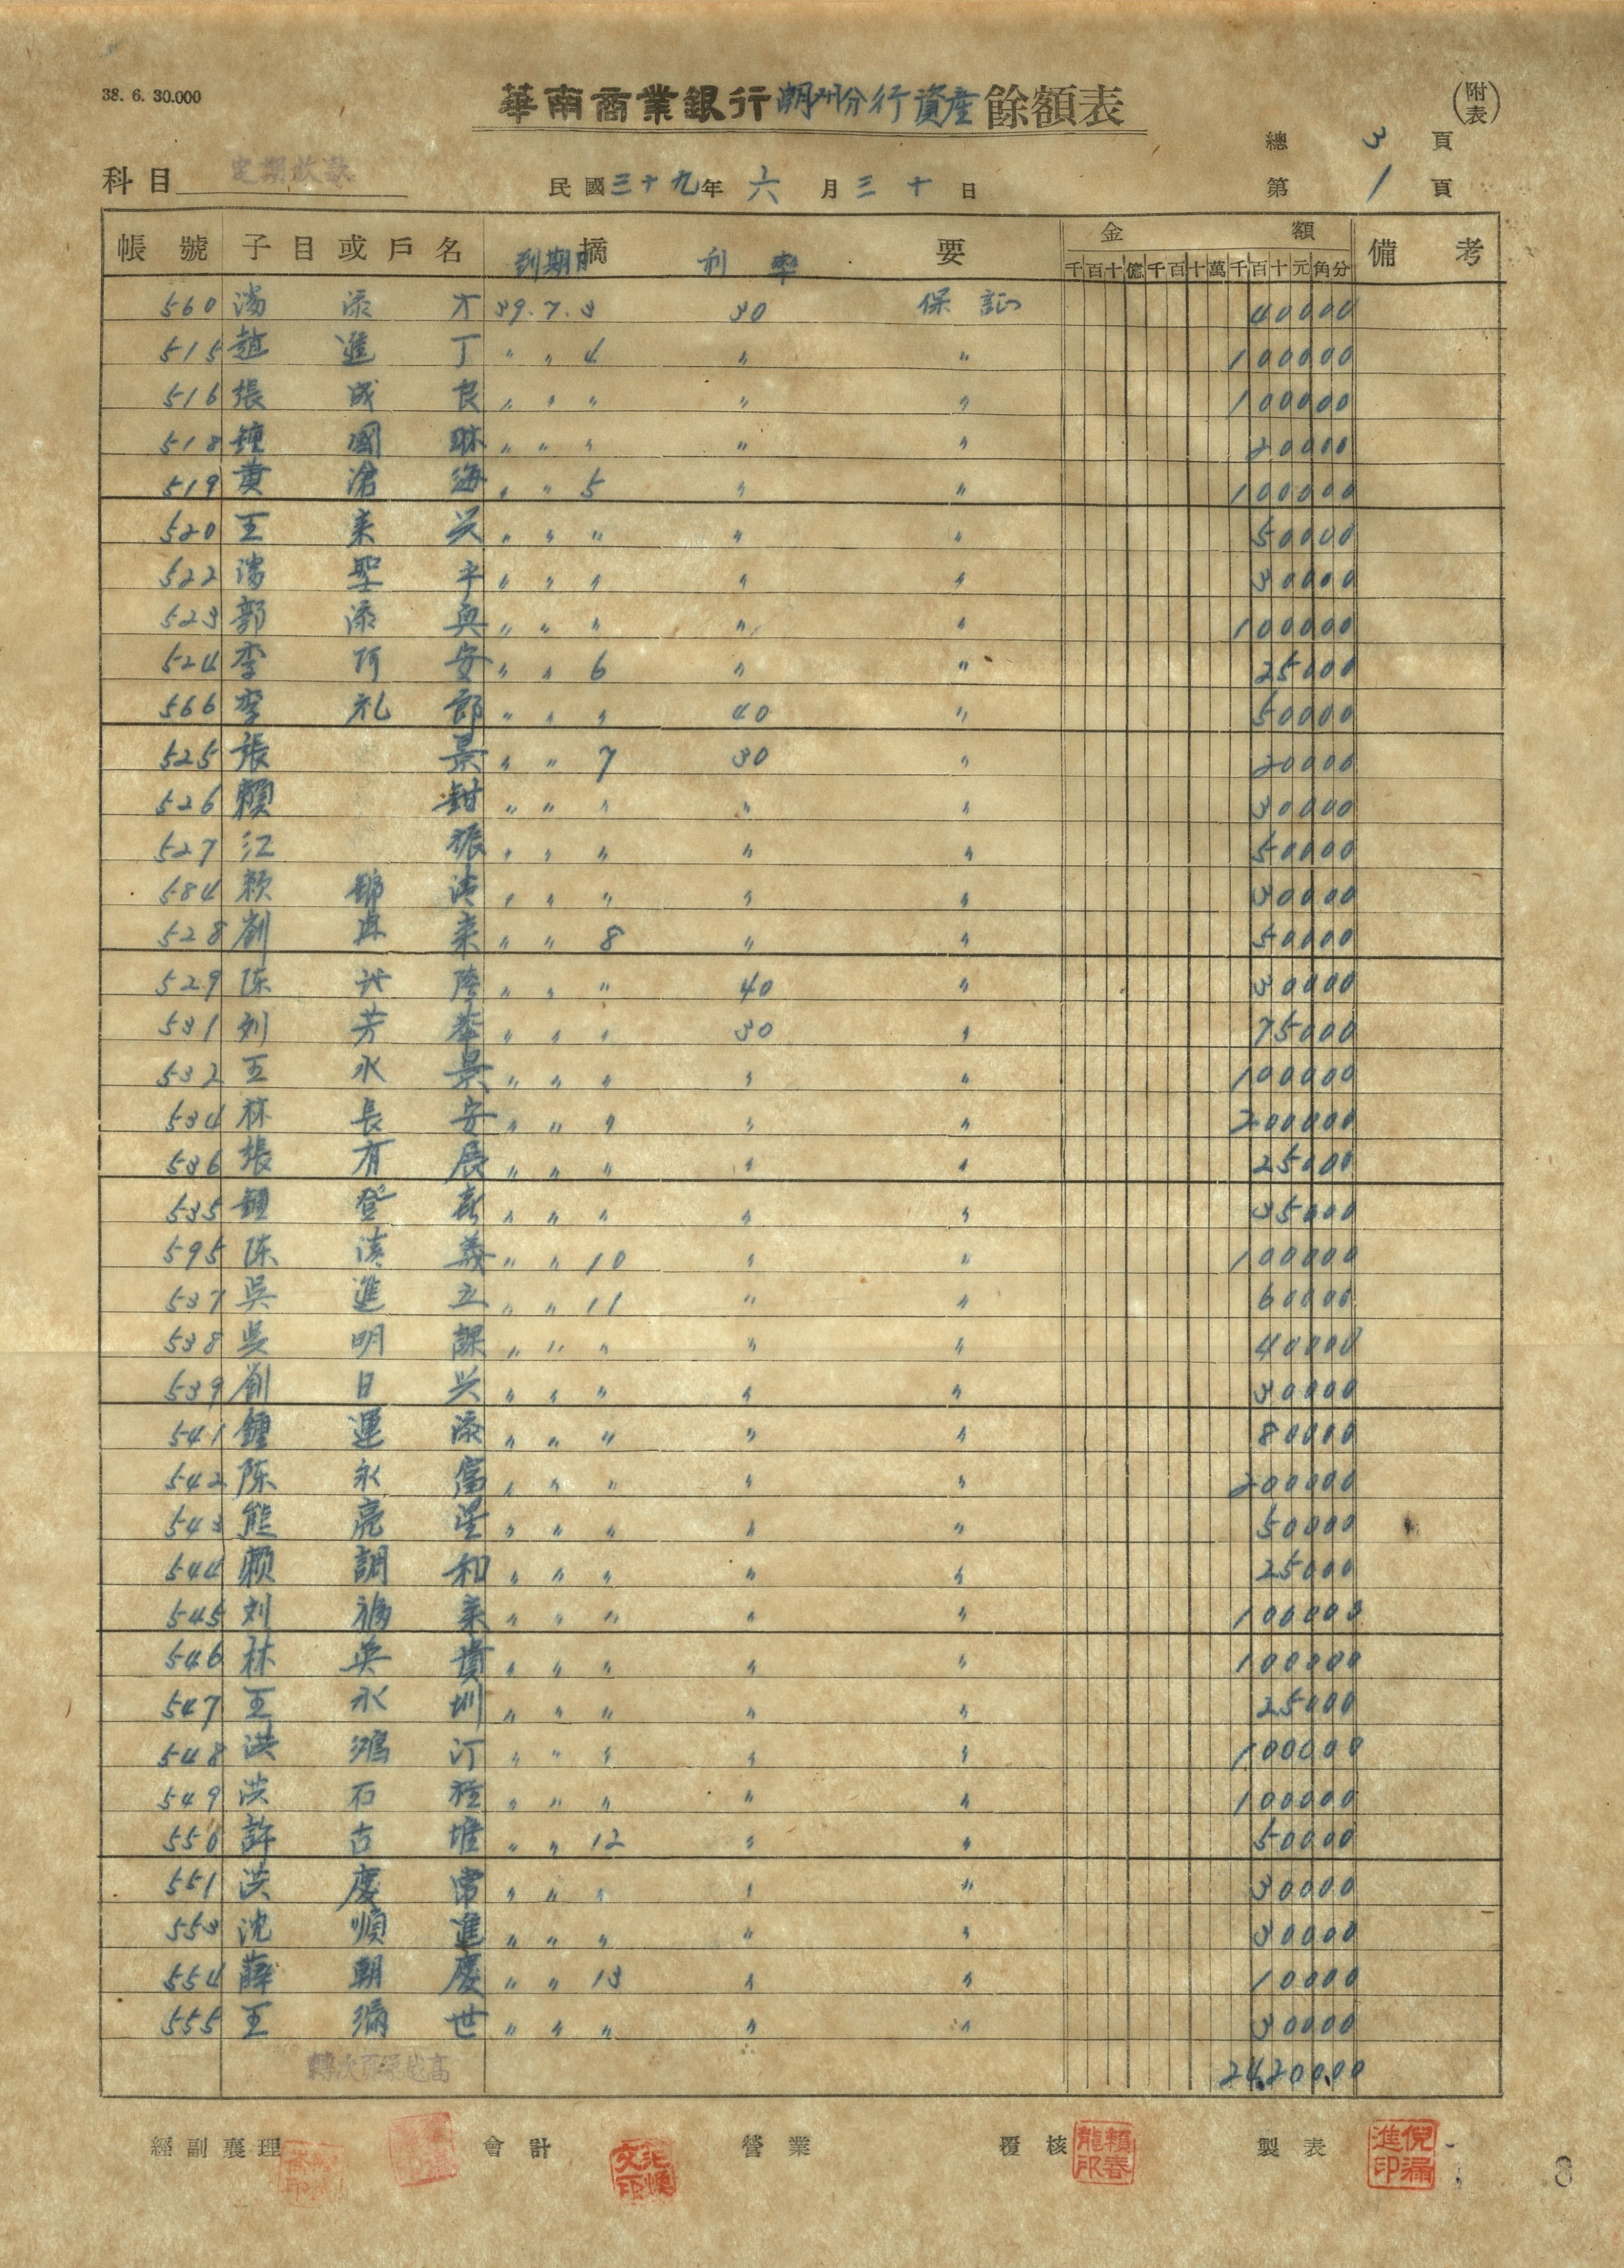 38. 6. 30.000
華南商業銀行潮州分行資産餘額表
(附表)
總 3 頁
科目 定期放款
民國三十九年 六 月 三 十 日
第 1 頁
帳號 子目或戶名 摘要 到期日 利率 金額 備考
千百十億千百十萬千百十元角分
560 湯添才 39.7.3 30 保証 40000
515 趙進丁 〃 〃 4 〃 〃 100000
516 張成良 〃 〃 〃 〃 〃 100000
518 鍾國琳 〃 〃 〃 〃 〃 20000
519 黄滄海 〃 〃 5 〃 〃 100000
520 王来兴 〃 〃 〃 〃 〃 50000
522 湯聖平 〃 〃 〃 〃 〃 30000
523 郭添與 〃 〃 〃 〃 〃 100000
524 李阿安 〃 〃 6 〃 〃 25000
566 李礼郎 〃 〃 〃 40 〃 50000
525 張景 〃 〃 7 30 〃 20000
526 賴鉗 〃 〃 〃 〃 〃 30000
527 江振 〃 〃 〃 〃 〃 50000
584 〃 〃 〃 〃 〃 30000
528 劉再来 〃 〃 8 〃 〃 50000
529 陈隆 〃 〃 〃 40 〃 30000
531 刘芳 〃 〃 〃 30 〃 75000
532 王水景 〃 〃 〃 〃 〃 100000
534 林長安 〃 〃 〃 〃 〃 200000
536 張有辰 〃 〃 〃 〃 〃 25000
535 鍾登喜 〃 〃 〃 〃 〃 35000
595 陈義 〃 〃 10 〃 〃 100000
537 吳進立 〃 〃 11 〃 〃 60000
538 吳明課 〃 〃 〃 〃 〃 40000
539 劉日兴 〃 〃 〃 〃 〃 30000
541 鍾運添 〃 〃 〃 〃 〃 80000
542 陈永富 〃 〃 〃 〃 〃 200000
543 熊亮星 〃 〃 〃 〃 〃 50000
544 賴調和 〃 〃 〃 〃 〃 25000
545 刘福来 〃 〃 〃 〃 〃 100000
546 林英貴 〃 〃 〃 〃 〃 100000
547 王永圳 〃 〃 〃 〃 〃 25000
548 洪鴻汀 〃 〃 〃 〃 〃 100000
549 洪石 〃 〃 〃 〃 〃 100000
550 許古堆 〃 〃 12 〃 〃 50000
551 洪慶常 〃 〃 〃 〃 〃 30000
553 沈順進 〃 〃 〃 〃 〃 30000
554 薛朝慶 〃 〃 13 〃 〃 10000
555 王滿世 〃 〃 〃 〃 〃 30000
2420000
經副襄理 會計 營業 覆核 賴春龍印 製表 倪漏進印
8